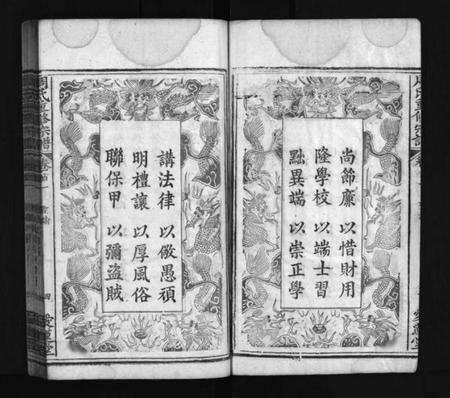 尚節廉 以惜財用
隆學校 以端士習
黜異端 以崇正學
講法律 以儆愚頑
明禮讓 以厚風俗
聯保甲 以彌盜賊
氏重修宗譜
四